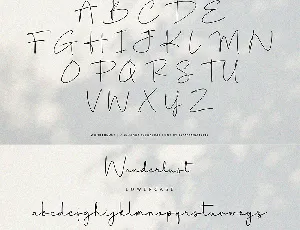 A B C D E
F G H I J K L M N
O P Q R S T U
V W X Y Z
Wanderlust
LOWERCASE
abcdefghijklmnopqrstuvwxyz